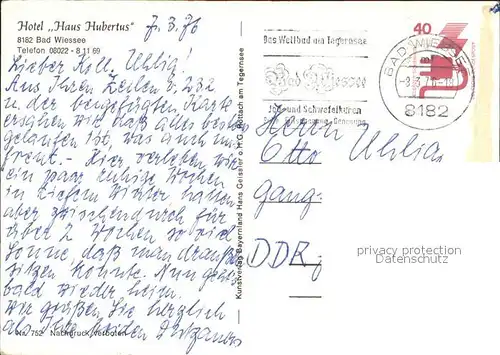 Hotel „Haus Hubertus"
8182 Bad Wiessee
Telefon 08022 - 8 11 69
7. 3. 76
Lieber Koll. Uhlig!
Aus Ihren Zeilen v. 23.2
u. der beigefügten Karte
ersahen wir daß alles bestens
gelaufen ist, was auch uns
freut. - Hier verleben wir
ein paar ruhige Wochen
in tiefem Winter, haben
aber zwischendurch für
über 2 Wochen so viel
Sonne, daß man draußen
sitzen konnte. Nun geht's
bald wieder heim.
Wir grüßen Sie herzlich
als Ihre beiden
Nr. 752 Nachdruck verboten
Kunstverlag Bayernland Hans Geissler o.H.G. Rottach am Tegernsee
Das Weltbad am Tegernsee
Bad Wiessee
Jod- und Schwefelkuren
40
BAD WIESSEE
8182
Herrn
Otto Uhlig
DDR
privacy protection
Datenschutz